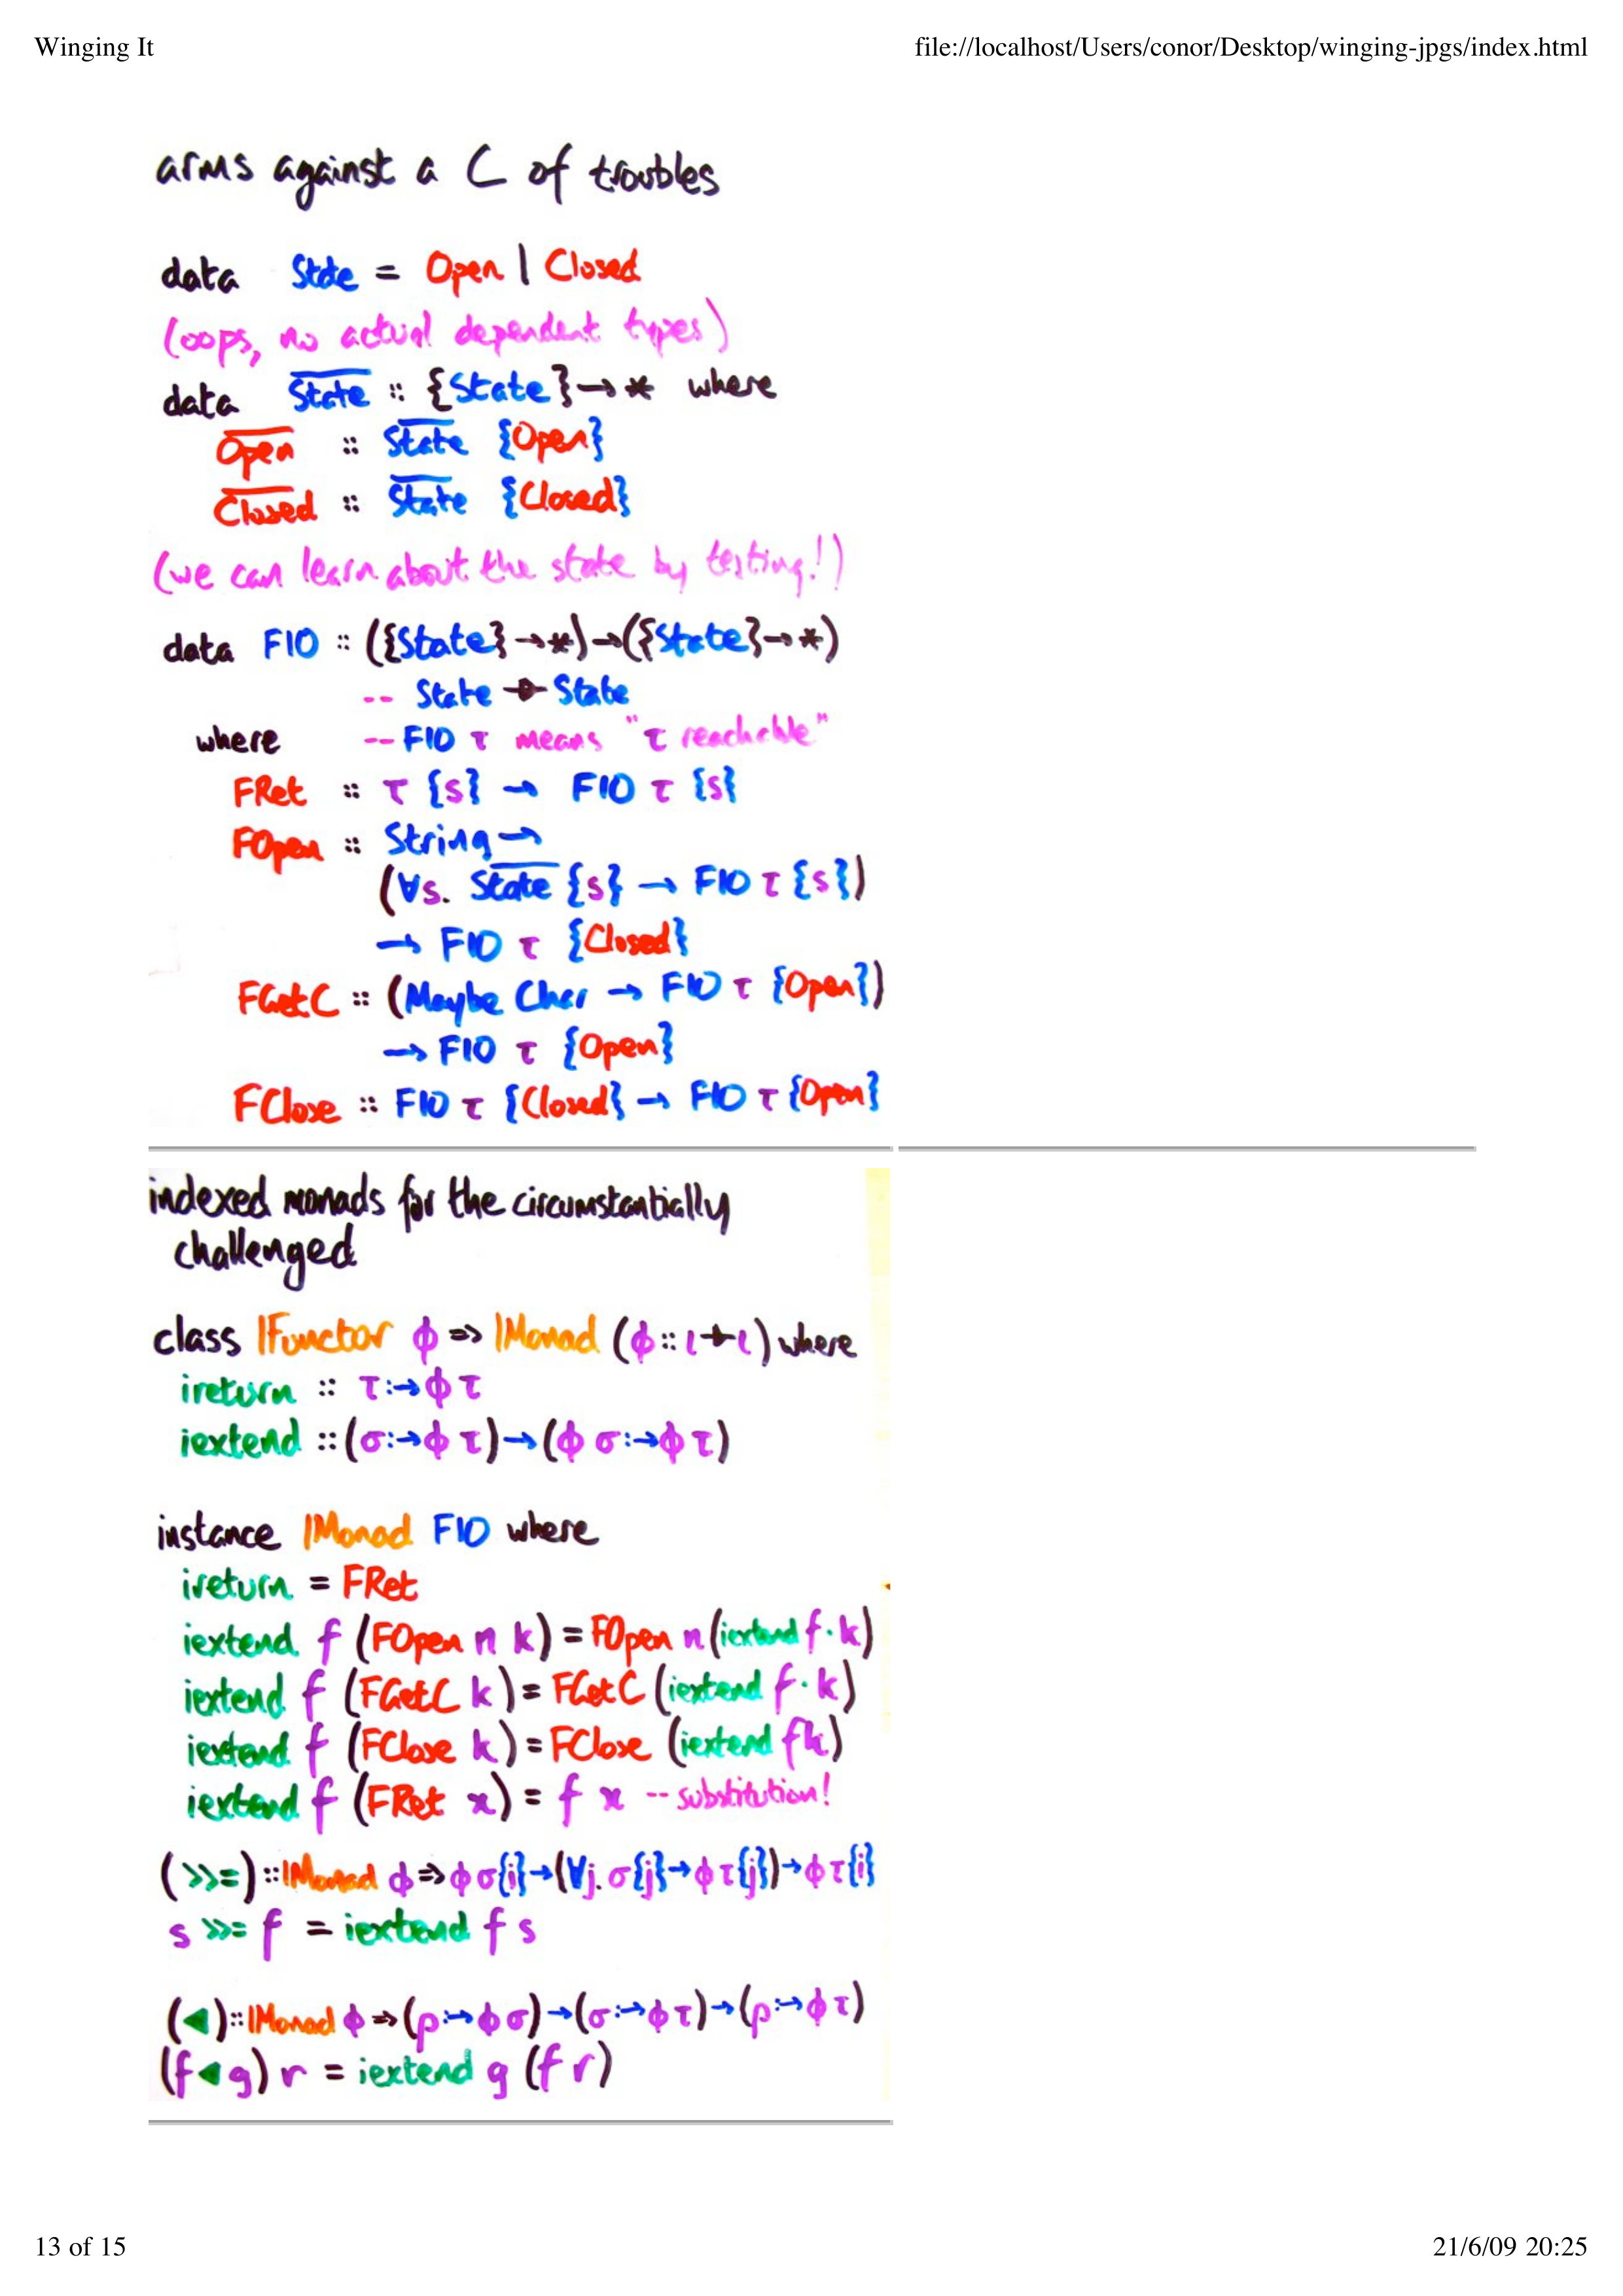 Winging It file://localhost/Users/conor/Desktop/winging-jpgs/index.html
arms against a C of troubles
data State = Open | Closed
(oops, no actual dependent types)
data S̅t̅a̅t̅e̅ :: {State} → * where
O̅p̅e̅n̅ :: S̅t̅a̅t̅e̅ {Open}
C̅l̅o̅s̅e̅d̅ :: S̅t̅a̅t̅e̅ {Closed}
(we can learn about the state by testing!)
data FIO :: ({State} → *) → ({State} → *)
-- State ⇸ State
where -- FIO τ means "τ reachable"
FRet :: τ {s} → FIO τ {s}
FOpen :: String →
(∀s. S̅t̅a̅t̅e̅ {s} → FIO τ {s})
→ FIO τ {Closed}
FGetC :: (Maybe Char → FIO τ {Open})
→ FIO τ {Open}
FClose :: FIO τ {Closed} → FIO τ {Open}
indexed monads for the circumstantially
challenged
class IFunctor φ => IMonad (φ :: ι ⇸ ι) where
ireturn :: τ :→ φ τ
iextend :: (σ :→ φ τ) → (φ σ :→ φ τ)
instance IMonad FIO where
ireturn = FRet
iextend f (FOpen n k) = FOpen n (iextend f · k)
iextend f (FGetC k) = FGetC (iextend f · k)
iextend f (FClose k) = FClose (iextend f k)
iextend f (FRet x) = f x -- substitution!
(>>=) :: IMonad φ => φ σ{i} → (∀j. σ{j} → φ τ{j}) → φ τ{i}
s >>= f = iextend f s
(◂) :: IMonad φ => (ρ :→ φ σ) → (σ :→ φ τ) → (ρ :→ φ τ)
(f ◂ g) r = iextend g (f r)
13 of 15 21/6/09 20:25